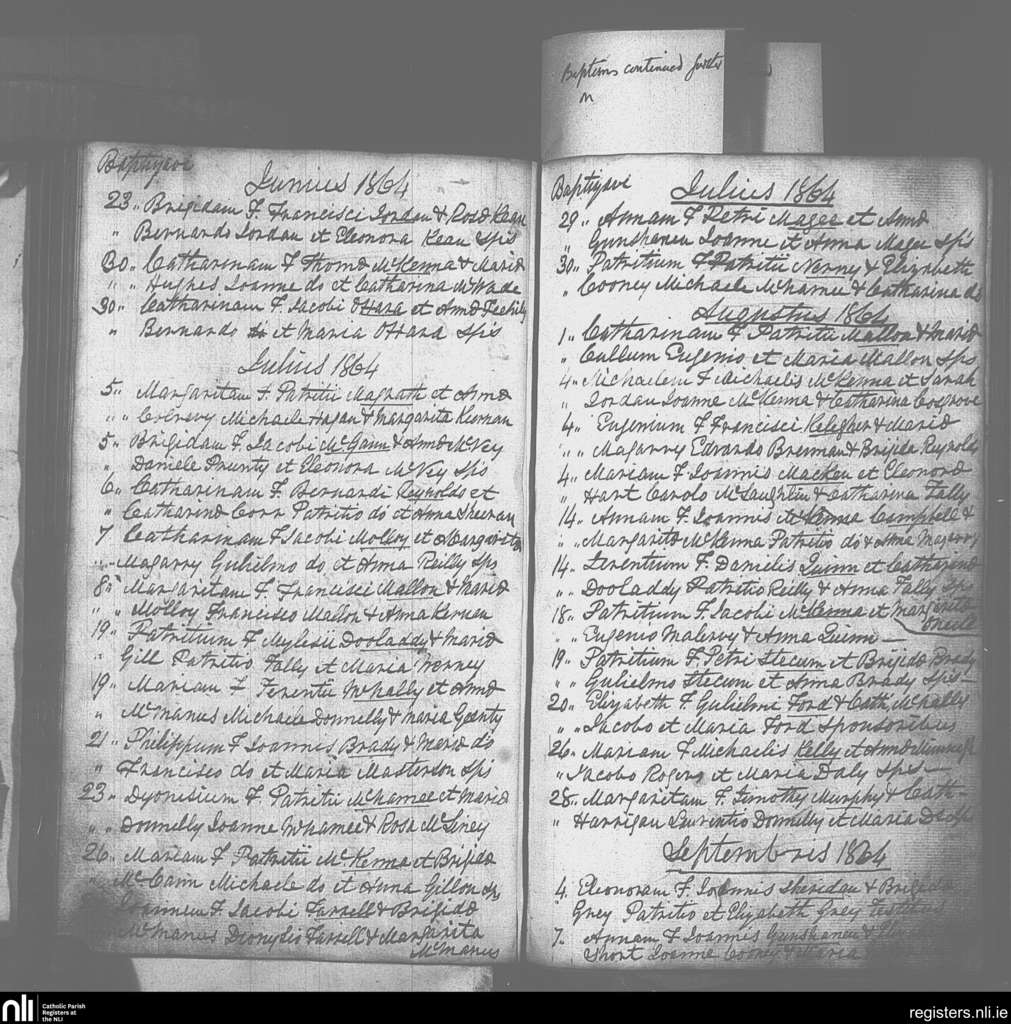 Baptisms continued further
on
Baptizavi
Junius 1864
23 " Brigidam F. Francisci Jordan & Rosæ Kean
" Bernardo Jordan et Eleonora Kean Spis
30 " Catharinam F Thomæ McKenna & Mariæ
" " Hughes Joanne do et Catharina McWade
30 " Catharinam F. Jacobi OHara et Annæ Feehily
" Bernardo do et Maria OHara Spis
Julius 1864
5 " Margaritam F Patritii Magrath et Annæ
" " Creevy Michaele Hagan & Margarita Kiernan
5 " Brigidam F. Jacobi McGann & Annæ McVey
" Daniele Prunty et Eleonora McVey Spis
6 " Catharinam F. Bernardi Reynolds et
" Catharinæ Corr Patritio do et Anna Sheeran
7 Catharinam F Jacobi Molloy et Margaritæ
" " Magarry Gulielmo do et Anna Reilly Spis
8 " Margaritam F. Francisci Mallon & Mariæ
" " Molloy Francisco Mallon & Anna Kernan
19 " Patritium F Mylesii Dooladdy & Mariæ
" Gill Patritio Fally et Maria Nerney
19 " Mariam F Terentii McNally et Annæ
" McManus Michaele Donnelly & Maria Geenty
21 " Philippum F Joannis Brady & Mariæ do
" Francisco do et Maria Masterson Spis
23 " Dyonisium F Patritii McNamee et Mariæ
" " Donnelly Joanne McNamee & Rosa McGiney
26 " Mariam F Patritii McKenna et Brigidæ
" McCann Michaele do et Anna Gillon Sps
Joannem F. Jacobi Farrell & Brigidæ
McManus Dionysio Farrell & Margarita
McManus
Baptizavi
Julius 1864
29 " Annam F Petri Magee et Annæ
" Gunshanan Joanne et Anna Magee Spis
30 " Patritium F Patritii Nerny & Elizabeth
" Cooney Michaele McNamee & Catharina do
Augustus 1864
1 " Catharinam F Patritii Mallon & Mariæ
" Cullum Eugenio et Maria Mallon Sps
4 " Michaelem F Michaelis McKenna et Sarah
" Jordan Joanne McKenna & Catharina Cosgrove
4 " Eugenium F Francisci Kelegher & Mariæ
" " Magarry Edvardo Brennan & Brigida Reynolds
4 " Mariam F Joannis Macken et Eleonoræ
" Hart Carolo McLaughlin & Catharina Fally
14 " Annam F. Joannis McKenna Campbell &
" " Margaritæ McKenna Patritio do & Anna Magarry
14 " Terentium F. Danielis Quinn et Catharinæ
" Dooladdy Patritio Reilly & Anna Fally Sps
18 " Patritium F. Jacobi McKenna et Margaritæ
Oneill
" " Eugenio Mulervy & Anna Quinn
19 " Patritium F Petri Slecum et Brigidæ Brady
" " Gulielmo Slecum et Anna Brady Spis
20 " Elizabeth F Gulielmi Ford & Cath. McNally
" " Jacobo et Maria Ford Sponsoribus
26 " Mariam F Michaelis Kelly et Annæ
" Jacobo Rogers et Maria Daly Sps
28 " Margaritam F. Timothy Murphy & Cath
" Harrigan Laurentio Donnelly et Maria Do Sps
Septembris 1864
4. Eleonoram F. Joannis Sheridan & Brigidæ
Grey Patritio et Elizabeth Grey Testibus
7 " Annam F Joannis Gunshanan &
Short Joanne Cooney & Maria
nli
Catholic Parish
Registers at
the NLI
registers.nli.ie